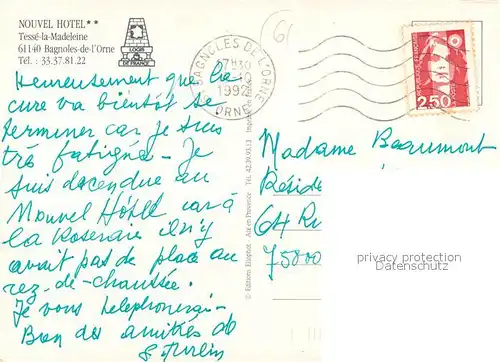 NOUVEL HOTEL**
Tessé-la-Madeleine
61140 Bagnoles-de-l'Orne
Tél. : 33.37.81.22
LOGIS
DE FRANCE
BAGNOLES DE L'ORNE
07H30
1992
ORNE
RÉPUBLIQUE FRANÇAISE
2,50
Heureusement que la
cure va bientôt se
terminer car je suis
très fatiguée - Je
suis descendue au
Nouvel Hôtel car à
la Roseraie il n'y
avait pas de place au
rez-de-chaussée.
Je vous téléphonerai -
Bon des amitiés de
© Editions Etophot - Aix en Provence - Tél. 42.39.93.13
Madame Beaumont
Réside
64 Ru
75800
privacy protection
Datenschutz